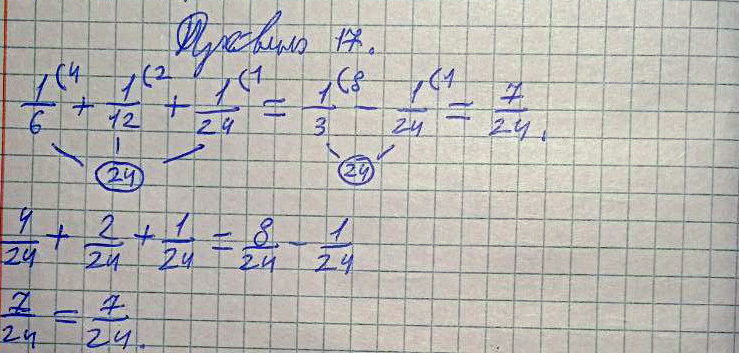 17.
1/6 (4 + 1/12 (2 + 1/24 (1 = 1/3 (8 - 1/24 (1 = 7/24.
24 24
4/24 + 2/24 + 1/24 = 8/24 - 1/24
7/24 = 7/24.